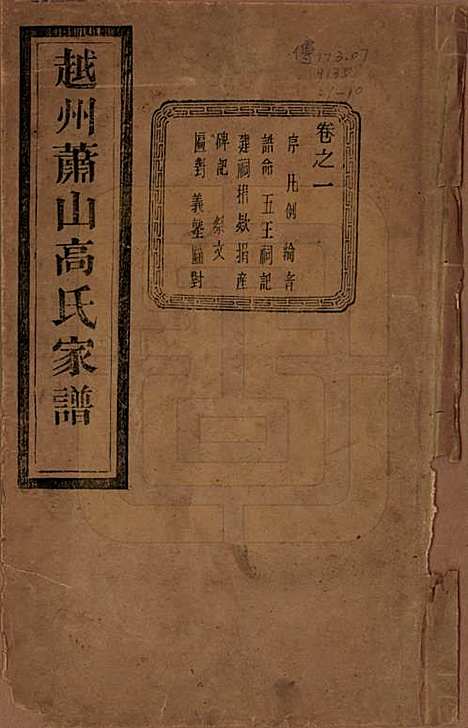 越州蕭山高氏家譜
卷之一
序 凡例 論旨
誥命 五王祠記
建祠捐款捐產
碑記 祭文
匾對 義塾匾對
傳 173.07